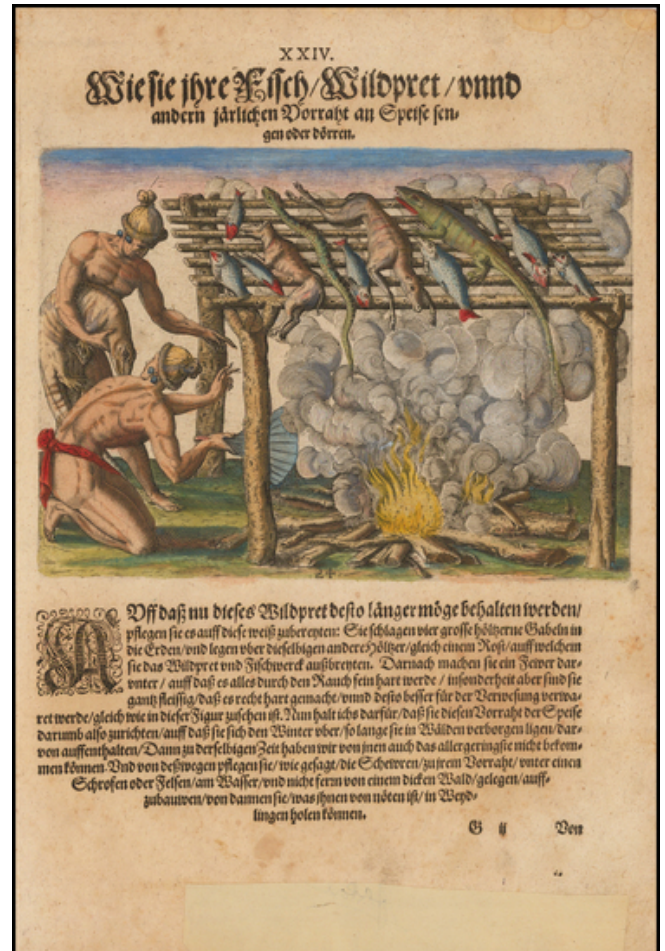 XXIV.
Wie sie jhre Fisch/Wildpret/vnnd
andern järlichen Vorraht an Speise sen-
gen oder dörren.
24.
AVff daß nu dieses Wildpret desto länger möge behalten werden/
pflegen sie es auff diese weiß zubereyten: Sie schlagen vier grosse höltzerne Gabeln in
die Erden/vnd legen vber dieselbigen andere Höltzer/gleich einem Rost/auff welchem
sie das Wildpret vnd Fischwerck außbreyten. Darnach machen sie ein Fewer dar-
vnter/auff daß es alles durch den Rauch fein hart werde/insonderheit aber sind sie
gantz fleissig/daß es recht hart gemacht/vnnd desto besser für der Verwesung verwa-
ret werde/gleich wie in dieser Figur zusehen ist. Nun halt ichs darfür/daß sie diesen Vorraht der Speise
darumb also zurichten/auff daß sie sich den Winter vber/so lange sie in Wälden verborgen ligen/dar-
von auffenthalten/Dann zu derselbigen Zeit haben wir von jnen auch das allergeringste nicht bekom-
men können. Vnd von deßwegen pflegen sie/wie gesagt/die Schewren/zu jrem Vorraht/vnter einen
Schrofen oder Felsen/am Wasser/vnd nicht ferrn von einem dicken Wald/gelegen/auff-
zubauwen/von dannen sie/was jhnen von nöten ist/in Weyd-
lingen holen können.
G ij Von